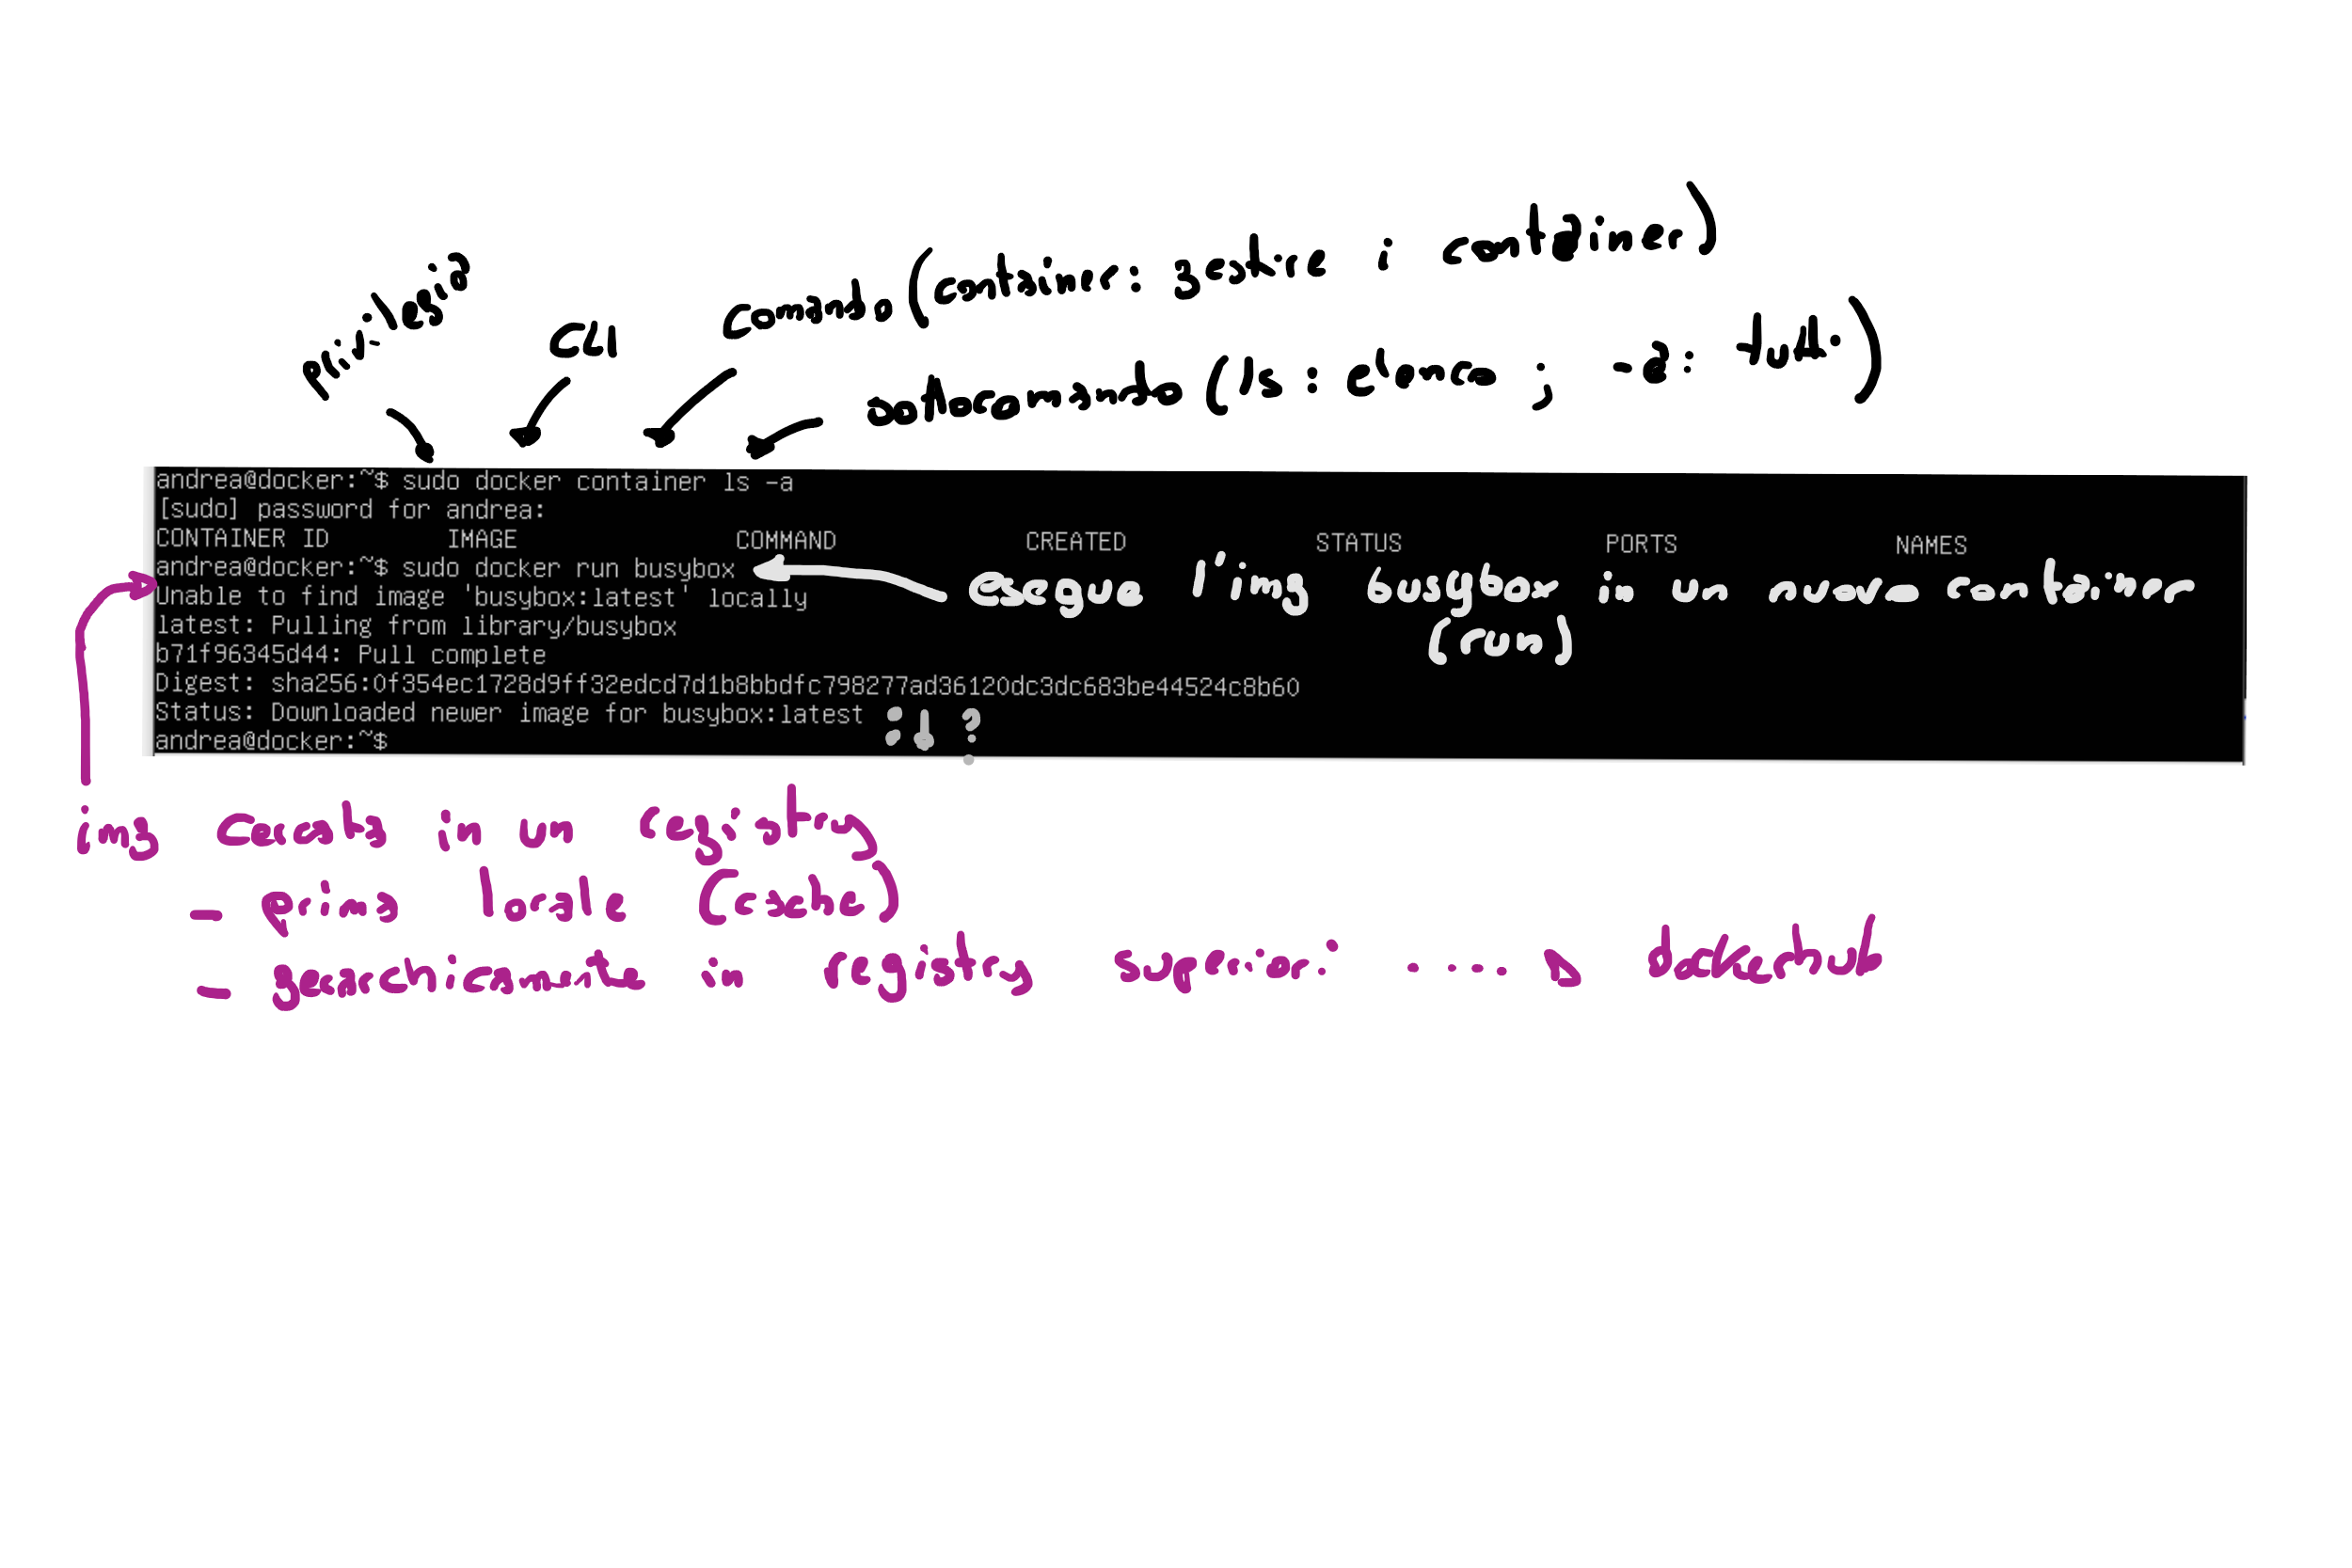 privilegio
CLI
comando (container: gestire i container)
sottocomando (ls: elenco ; -a: tutti)
andrea@docker:~$ sudo docker container ls -a
[sudo] password for andrea:
CONTAINER ID IMAGE COMMAND CREATED STATUS PORTS NAMES
andrea@docker:~$ sudo docker run busybox
esegue l'img busybox in un nuovo container
(run)
Unable to find image 'busybox:latest' locally
latest: Pulling from library/busybox
b71f96345d44: Pull complete
Digest: sha256:0f354ec1728d9ff32edcd7d1b8bbdfc798277ad36120dc3dc683be44524c8b60
Status: Downloaded newer image for busybox:latest
andrea@docker:~$
img cercata in un registry
- prima locale (cache)
- gerarchicamente in registry superiori .... dockerhub